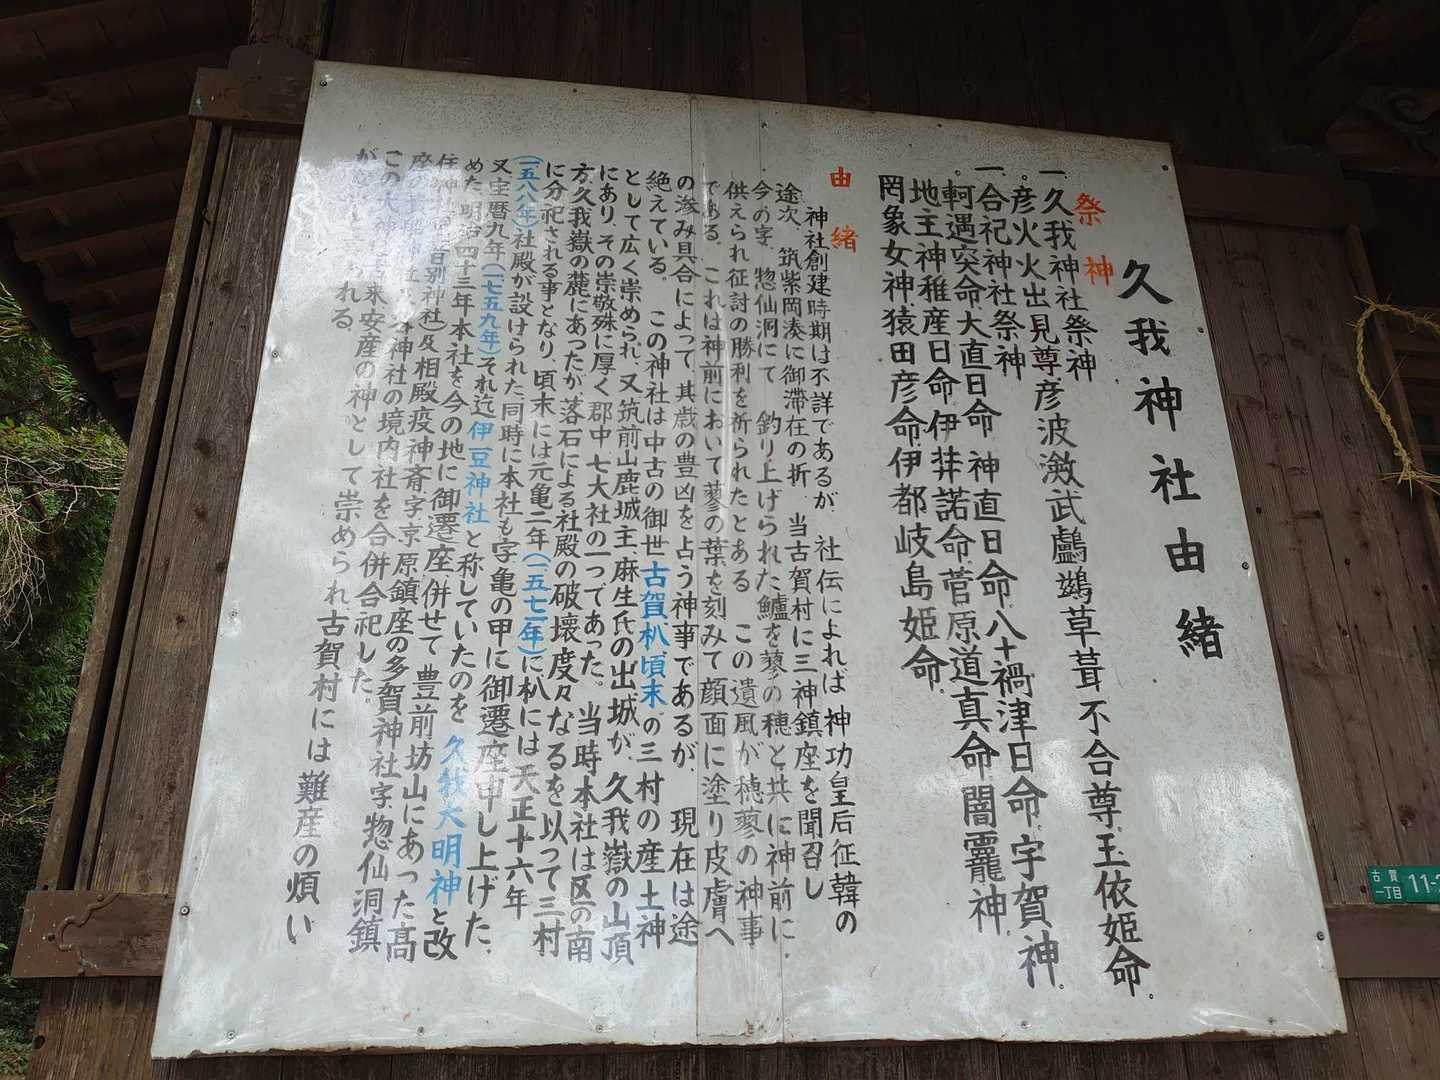 久我神社由緒
祭神
一、久我神社祭神
彦火火出見尊彦波瀲武鸕鷀草葺不合尊玉依姫命。
一、合祀神社祭神
軻遇突命大直日命神直日命八十禍津日命宇賀神
地主神稚産日命伊弉諾命菅原道真命闇靇神
罔象女神猿田彦命伊都岐島姫命
由緒
神社創建時期は不詳であるが、社伝によれば神功皇后征韓の
途次、筑紫岡湊に御滞在の折、当古賀村に三神鎮座を聞召し
今の字、惣仙洞にて釣り上げられた鱸を蓼の穂と共に神前に
供えられ征討の勝利を祈られたとある この遺風が穂蓼の神事
である。これは神前において蓼の葉を刻みて顔面に塗り皮膚へ
の滲み具合によって、其歳の豊凶を占う神事であるが、現在は途
絶えている。この神社は中古の御世古賀朳頃末の三村の産土神
として広く崇められ、又筑前山鹿城主、麻生氏の出城が、久我嶽の山頂
にあり、その崇敬殊に厚く郡中七大社の一つであった。当時本社は区の南
方久我嶽の麓にあったが落石による社殿の破壊度々なるを以って三村
に分祀される事となり、頃末には元亀二年(一五七一年)に朳には天正十六年
(一五八八年)社殿が設けられた同時に本社も字亀の甲に御遷座申し上げた、
又宝暦九年(一七五九年)それ迄伊豆神社と称していたのを 久我大明神と改
めた、明治四十三年本社を今の地に御遷座、併せて豊前坊山にあった高
住神社 別神社)及相殿疫神斎字京原鎮座の多賀神社字惣仙洞鎮
座の 神社の境内社を合併合祀した。
この 来安産の神として崇められ、古賀村には難産の煩い
が られる
古賀
一丁目
11-